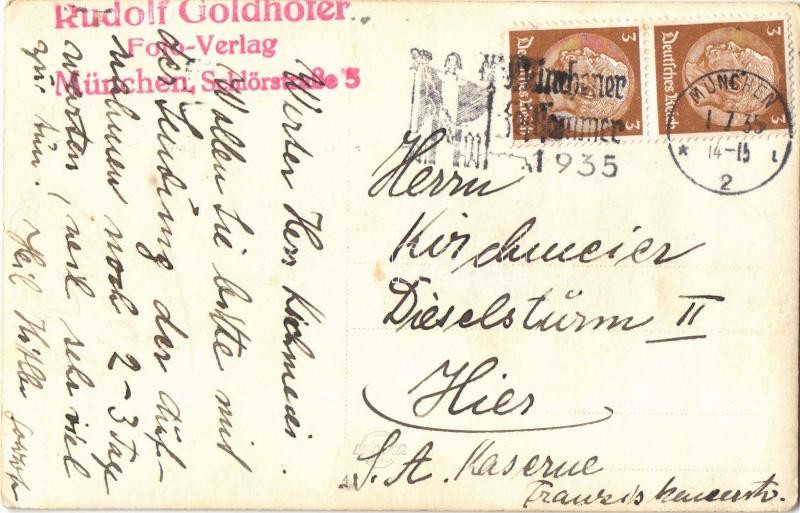 Rudolf Goldhofer
Foto-Verlag
München, Schlörstraße 5
Werter Herr Kirchmeier.
Wollen Sie bitte mit
der Sendung der Auf-
nahmen noch 2-3 Tage
warten, weil sehr viel
zu tun. Heil Hitler
Herrn
Kirchmeier
Dieselsturm II
Hier
S. A. Kaserne
Franziskanerstr.
Münchener
Sommer
1935
Deutsches Reich 3
Deutsches Reich 3
MÜNCHEN
1.7.35
14-15
* 2